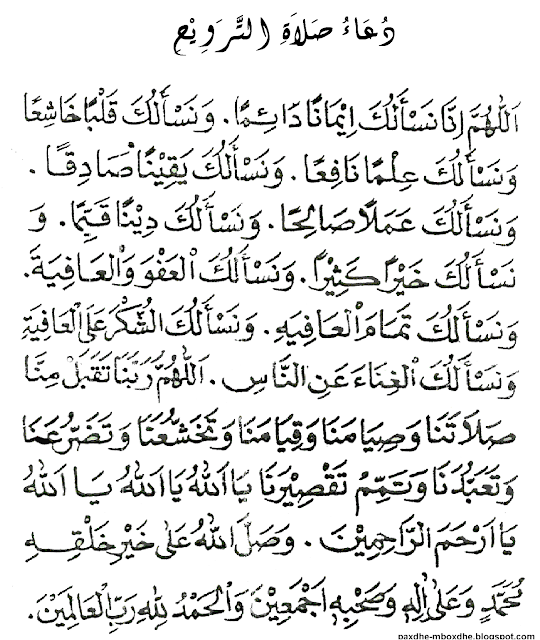 دُعَاءُ صَلَاةِ التَّرَوِيْحِ
اَللّٰهُمَّ اِنَّا نَسْأَلُكَ اِيْمَانًا دَائِمًا. وَنَسْأَلُكَ قَلْبًا خَاشِعًا
وَنَسْأَلُكَ عِلْمًا نَافِعًا. وَنَسْأَلُكَ يَقِيْنًا صَادِقًا.
وَنَسْأَلُكَ عَمَلًا صَالِحًا. وَنَسْأَلُكَ دِيْنًا قَيِّمًا. وَ
نَسْأَلُكَ خَيْرًا كَثِيْرًا. وَنَسْأَلُكَ الْعَفْوَ وَالْعَافِيَةَ.
وَنَسْأَلُكَ تَمَامَ الْعَافِيَةِ. وَنَسْأَلُكَ الشُّكْرَ عَلَى الْعَافِيَةِ
وَنَسْأَلُكَ الْغِنَاءَ عَنِ النَّاسِ. اَللّٰهُمَّ رَبَّنَا تَقَبَّلْ مِنَّا
صَلَاتَنَا وَصِيَامَنَا وَقِيَامَنَا وَتَخَشُّعَنَا وَتَضَرُّعَنَا
وَتَعَبُّدَنَا وَتَمِّمْ تَقْصِيْرَنَا يَا اَللهُ يَا اَللهُ يَا اَللهُ
يَا اَرْحَمَ الرَّاحِمِيْنَ. وَصَلَّ اللهُ عَلَى خَيْرِ خَلْقِهِ
مُحَمَّدٍ وَعَلَى اٰلِهِ وَصَحْبِهِ اَجْمَعِيْنَ وَالْحَمْدُ لِلّٰهِ رَبِّ الْعَالَمِيْنَ.
paxdhe-mboxdhe.blogspot.com